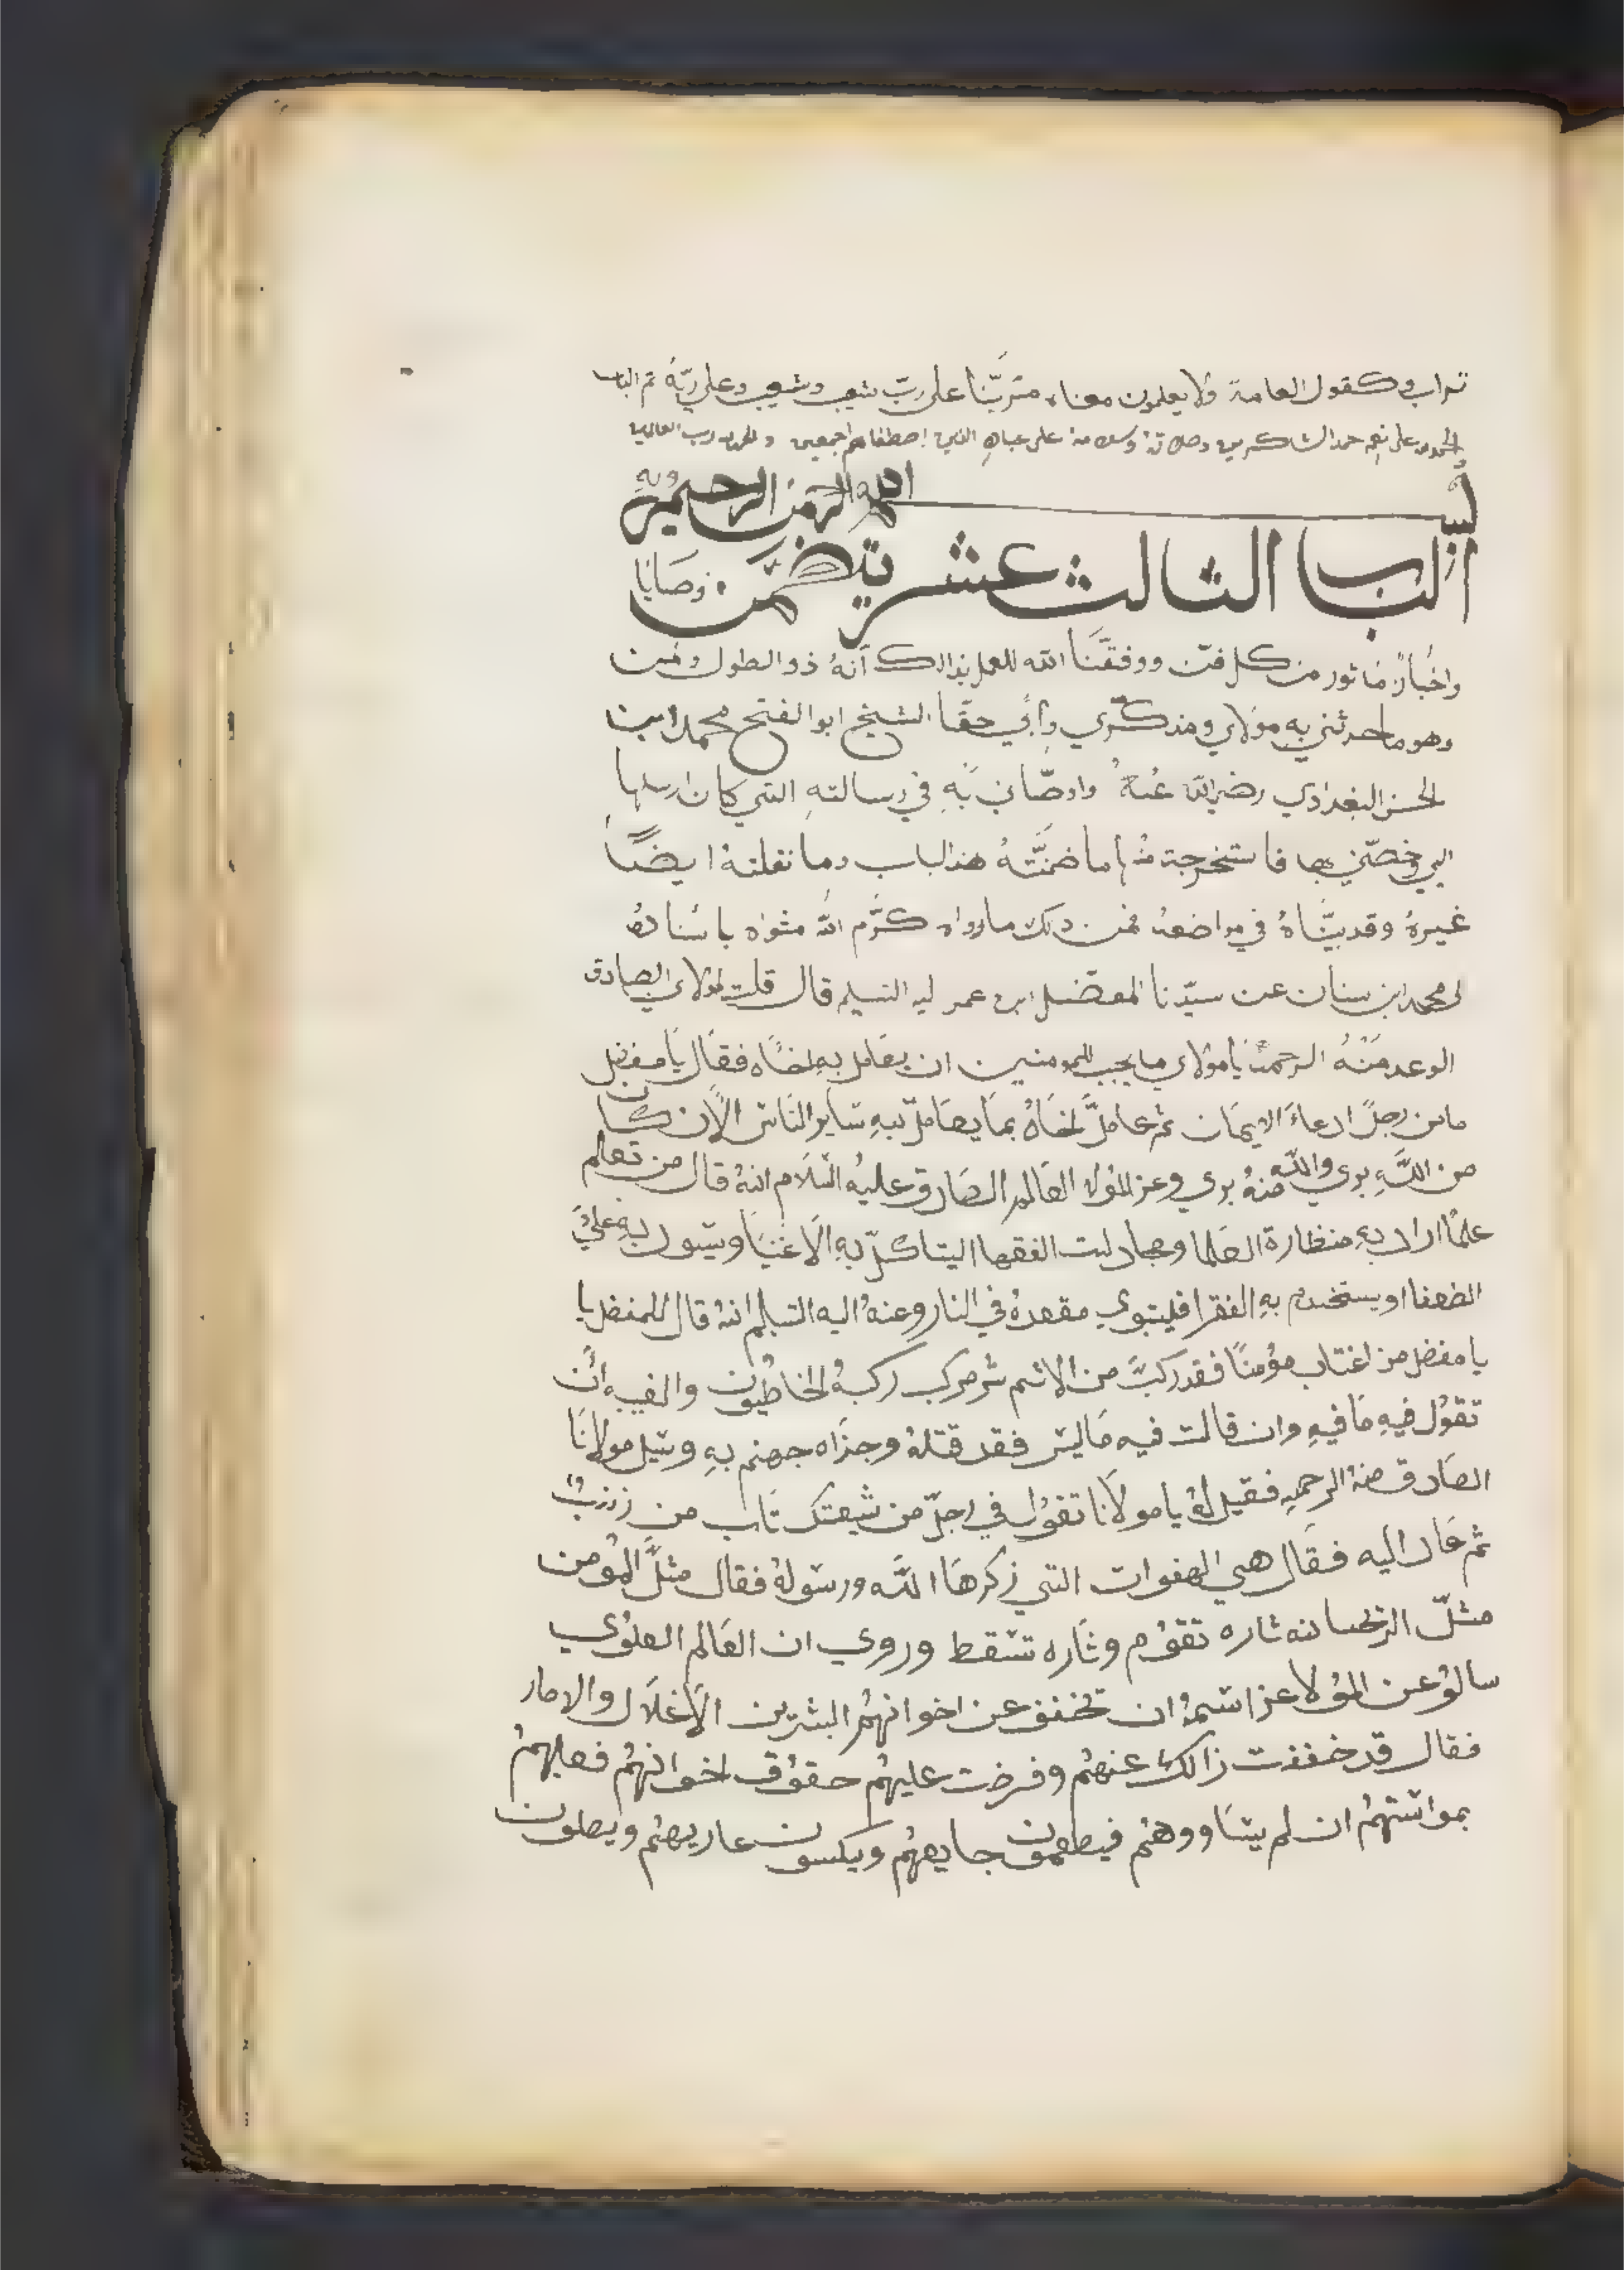 تراب وكقول العامة ولا يعلمون معناه متربّنا على ربّ شعيب وشعيب وعلى ربّه تم الباب
الحمد لله على نعمه حمد الشاكرين وصلاته وسلامه على عباده الذين اصطفاهم اجمعين والحمد لله رب العالمين
بسم الله الرحمن الرحيم وبه
الباب الثالث عشر يتضمّن وصايا
واخبار ماثور من كل فنّ ووفقّنا الله للعمل بذالك انّهُ ذو الطول والمن
وهو ما حدثني به مولاي ومذكّري وأبي حقّاً الشيخ ابو الفتح محمد ابن
الحسن البغدادي رضي الله عنهُ واوصّاني بَهِ في رسالتهِ التي كان ارسلها
اليّ وخصّني بها فاستخرجة منها ما ضمّنتهُ هذا الباب وما نقلتهُ ايضاً
غيرهُ وقد بيّناهُ في مواضعهُ فمن ذلك ما رواه كرّم الله مثواه باسناده
الى محمد ابن سنان عن سيّدنا المفضّل ابن عمر اليه التسليم قال قلت لمولاي الصادق
الوعد منهُ الرحمة يا مولاي ما يجب للمومنين ان يعامل به اخاه فقال يا مفضل
ما من رجلً ادعاء الايمان ثم عاملّ اخاهُ بما يعاملّ به ساير الناس الّا ان كان
من اللّهِ بري والله منهُ بري وعن المولا العالم الصادق عليهُ السّلام انهُ قال من تعلم
علماً اراد به منظارة العلما ومجادلت الفقها اليتاكلّ بهِ الاغنيا ويتسول بهِ على
الضعفا او يستخدم بهِ الفقرا فليتبوي مقعدهُ في النار وعنهُ اليه التسليم انهُ قال للمفضل يا
يا مفضل من اغتاب مؤمناً فقد ركبّ من الاثم شر مركب ركبهُ الخاطيون والغيبه انّ
تقوُل فيهِ ما فيهِ وان قالت فيه ما ليس فقد قتلهُ وجزاه جهنم بهِ وسيل مولانا
الصادق منهُ الرحمهِ فقيل لهُ يا مولانا تقوُل في رجلّ من شيعتك تاب من ذنبٍ
ثم عاد اليه فقال هي الهفوات التي ذكرها اللّه ورسولهُ فقال مثلّ المؤمن
مثلّ النخسانه تاره تقوُم وتاره تسقط وروي ان العالم العلوي
سالوُ عن المولا عز اسمهُ ان تخفف عن اخوانهُم البشريين الاغلال والاصار
فقال قد خففت ذالك عنهُم وفرضت عليهُم حقوُق اخوانهُم فعليهمُ
بمواستهُم ان لم يتساووهُم فيطعمون جايعهُم ويكسون عاريهُم ويصلون